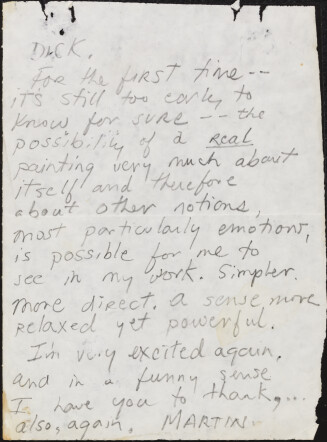 DICK.
For the first time --
it's still too early to
know for sure -- the
possibility of a real
painting very much about
itself and therefore
about other notions,
most particularly emotions,
is possible for me to
see in my work. Simpler.
more direct. a sense more
relaxed yet powerful.
I'm very excited again,
and in a funny sense
I have you to thank,...
also, again. MARTIN